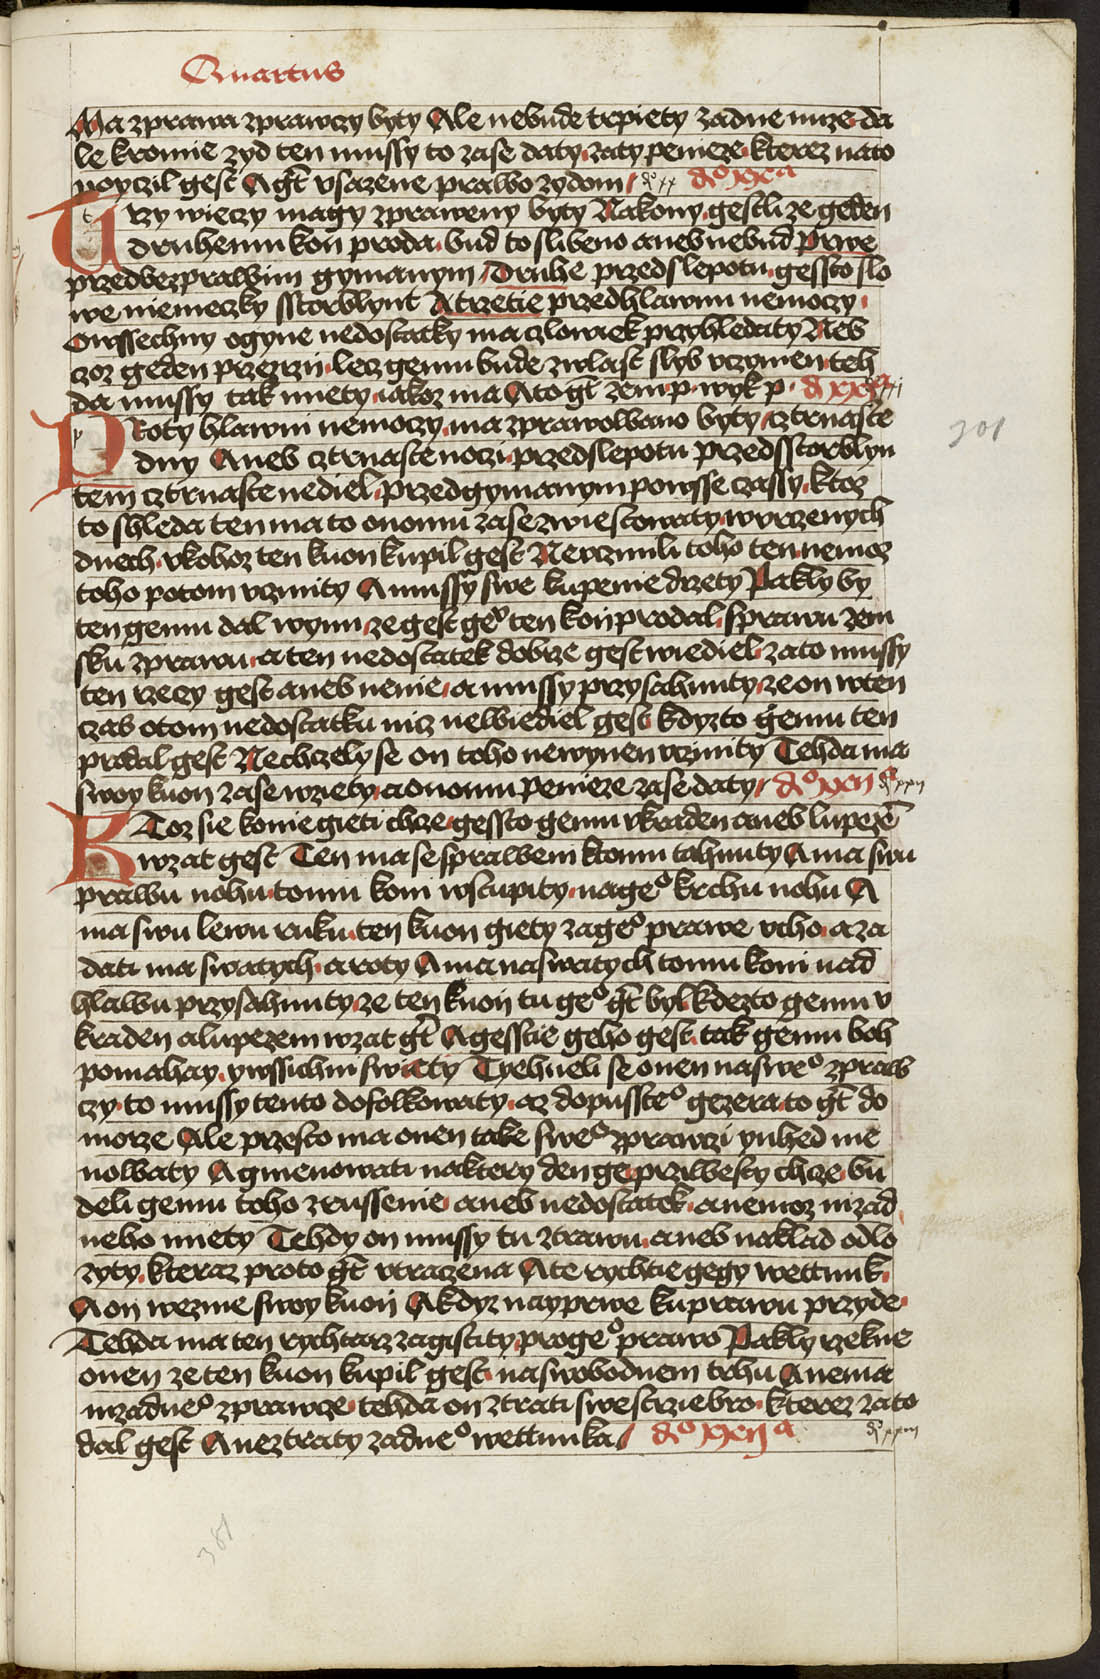 Quartus
Ma zprawa zprawczy byty Ale nebude trpiety zadne nuze da
le kromie zyd ten mussy to zase daty zaty penieze kterez nato
poyczil gest A gt vsazene prawo zydom do xx do xxa
Trzy wieczy magy zpraweny byty Nakony gestli ze geden
druhemu kon proda bud to slibeno aneb nebud Prwe
przedbezprawim gymanym Druhe przedslepotu gessto slo
we niemeczky sstorblynt A trzetie przedhlawnu nemoczy
Owssechny ogyne nedostatky ma czlowiek przyhledaty Neb
czoz geden przezrzi lecz gemu bude zwlast slyb vczynen teh
da mussy tak miety iakoz ma Ato gt zem p wyk p
Proty hlawni nemoczy ma zprawowano byty cztrnaste
dny Aneb cztrnaste noczi przedslepotu przedsstorblyn
tem cztrnaste nediel przedgymanym powsse czassy ktoz
to shleda ten ma to onomu zase zwiestowaty wvrzenych
dnech vkohoz ten kuon kupil gest Nevczinili toho ten nemoz
toho potom vczinity A mussy swe kupenie drzety Pakly by
ten gemu dal wynu ze gest geo ten kon prodal sprawu zem
sku zprawu a ten nedostatek dobrze gest wiediel zato mussy
ten rzeczy gest aneb nenie a mussy przysahnuty ze on wten
czas otom nedostatku nicz newiediel gest kdyzto gemu ten
prodal gest Nechczely se on toho newynen vczinity Tehda ma
swoy kuon zase wziety a onomu penieze zase daty do xxii
Ktoz sie konie gieti chcze gessto gemu vkraden aneb lupeze
wzat gest Ten ma se sprawem ktomu tahnuty A ma swu
prawu nohu tomu koni wstupity na geo krchu nohu A
ma swu lewu ruku ten kuon giety zageo prawe vcho a za
dati ma swatych a roty A ma naswatych tomu koni nad
hlawu przysahnuty ze ten kuon tu geo gt byl kdezto gemu v
kraden a lupezem wzat gt A gesstie geho gest tak gemu boh
pomahay ywssichni swatty Tyehneli se onen nasweo zpraw
czy to mussy tento dofolkowaty az dopussteo gezera to gt do
morze Ale przesto ma onen take sweo zprawczi ynhed me
nowaty A gmenowati naktery den ge prziwesty chcze bu
deli gemu toho zrussenie aneb nedostatek a nemoz nizad
neho miety Tehdy on mussy tu ztrawu aneb naklad odlo
zyty kteraz proto gt vtrazena Ate rychtie gegy wettunk
A on wezme swoy kuon A kdyz nayprwe kuprawu przyde
Tehda ma ten rychtarz zagistaty progeo prawo Pakly rzekne
onen ze ten kuon kupil gest naswobodnem trhu A nema
nizadneo zprawcze tehda on ztrati swe strziebro kterez zato
dal gest A neztraty zadneo wettunka do xxiij
301
381